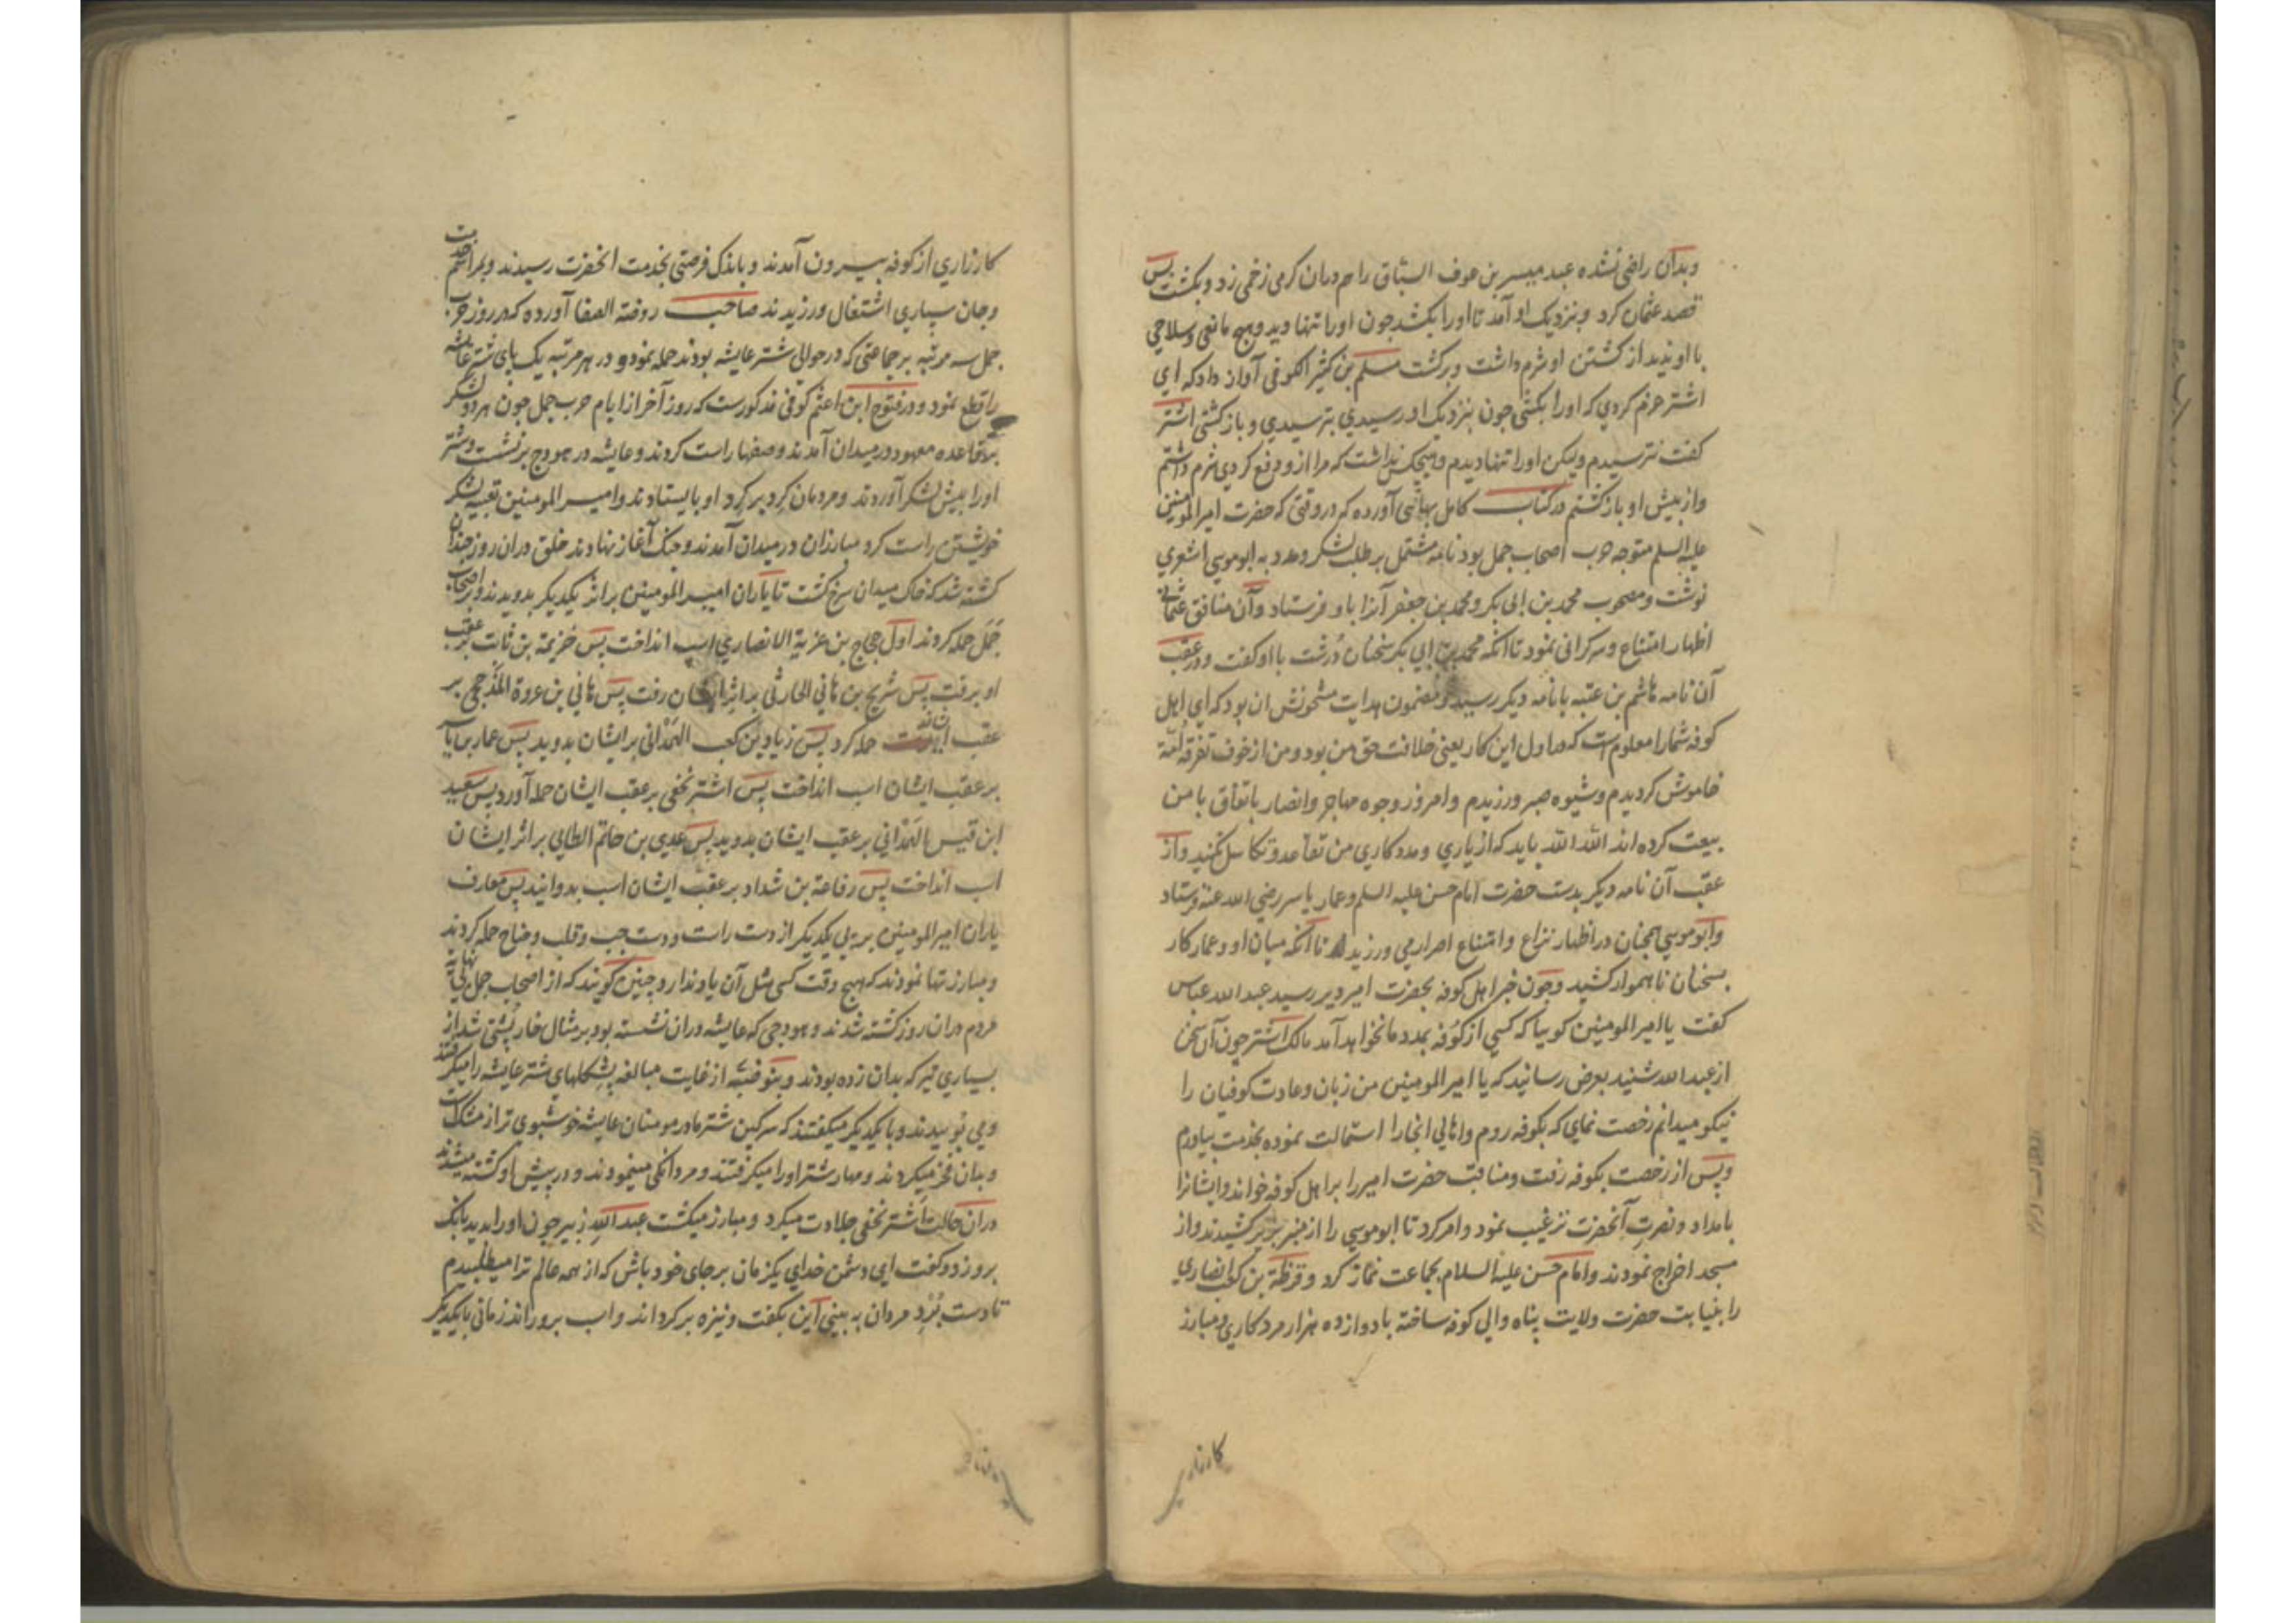 وبدان راضی نشده عبد میسر بن عوف السباق را هم دران کرمی زخمی زد و بکشت پس
قصد عثمان کرد و بنزدیک او آمد تا اورا بکشد جون اورا تنها دید و هیج مانعی و سلاحی
با او ندید از کشتن او شرم داشت و برکشت مسلم بن کثیر الکوفی آواز داد که ای
اشتر عزم کردی که اورا بکشی جون بنزدیک او رسیدی بترسیدی و باز کشتی اشتر
کفت نترسیدم ولیکن اورا تنها دیدم و هیجکس نداشت که مرا ازو دفع کردی شرم داشتم
واز پیش او باز کشتم در کتاب کامل بهائی آورده که در وقتی که حضرت امیر المومنین
علیه السلم متوجه حرب اصحاب جمل بود نامه مشتمل بر طلب لشکر و مدد به ابوموسی اشعری
نوشت و مصحوب محمد بن ابی بکر و محمد بن جعفر آنرا باو فرستاد و آن منافق عثمانی
اظهار امتناع و سرکرانی نمود تا آنکه محمد بن ابی بکر سخنان درشت با او کفت و در عقب
آن نامه هاشم بن عتبه با نامه دیکر رسید و مضمون هدایت مشحونش ان بود که ای اهل
کوفه شمارا معلوم است که در اول این کار یعنی خلافت حق من بود و من از خوف تفرقه امة
خاموش کردیدم و شیوه صبر ورزیدم و امروز وجوه مهاجر و انصار باتفاق با من
بیعت کرده اند الله الله باید که از یاری و مددکاری من تقاعد و تکاسل نکنید و از
عقب آن نامه دیکر بدست حضرت امام حسن علیه السلم و عمار یاسر رضی الله عنه فرستاد
و ابوموسی همجنان در اظهار نزاع و امتناع اصرار می ورزید تا آنکه میان او و عمار کار
بسخنان ناهموار کشید و جون خبر اهل کوفه بحضرت امیر دیر رسید عبد الله عباس
کفت یا امیر المومنین کوییا که کسی از کوفه بمدد ما نخواهد آمد مالک اشتر جون آن سخن
از عبد الله شنید بعرض رسانید که یا امیر المومنین من زبان و عادت کوفیان را
نیکو میدانم رخصت نمای که بکوفه روم و اهالی انجا را استمالت نموده بخدمت بیاورم
و پس از رخصت بکوفه رفت و مناقب حضرت امیر را بر اهل کوفه خواند و ایشانرا
بامداد و نصرت آنحضرت ترغیب نمود و امر کرد تا ابوموسی را از منبر بزیر کشیدند و از
مسجد اخراج نمودند و امام حسن علیه السلام بجماعت نماز کرد و قرظة بن کعب انصاری
را بنیابت حضرت ولایت پناه والی کوفه ساخته با دوازده هزار مرد کاری و مبارز
کارزاری
کارزاری از کوفه بیرون آمدند و باندک فرصتی بخدمت انحضرت رسیدند و بمراسم خدمت
و جان سپاری اشتغال ورزیدند صاحب روضة الصفا آورده که در روز حرب
جمل سه مرتبه بر جماعتی که در حوالی شتر عایشه بودند حمله نمود و در هر مرتبه یک پای شتر عایشه
را قطع نمود و در فتوح ابن اعثم کوفی مذکورست که روز آخر از ایام حرب جمل جون هر دو لشکر
بر قاعده معهود در میدان آمدند و صفها راست کردند و عایشه در هودج بر نشست و شتر
اورا پیش لشکر آوردند و مردمان کرد بر کرد او بایستادند و امیر المومنین تعبیه لشکر
خویشتن راست کرد مبارزان در میدان آمدند و جنک آغاز نهادند خلق دران روز جندان
کشته شد که خاک میدان سرخ کشت تا یاران امیر المومنین براثر یکدیکر بدویدند و بر اصحاب
جمل حمله کردند اول حجاج بن عزیة الانصاری اسب انداخت پس خزیمة بن ثابت بر عقب
او برفت پس شریح بن هانی الحارثی براثر ایشان رفت پس هانی بن عروة المذحجی بر
عقب ایشان حمله کرد پس زیاد بن کعب الهمدانی بر ایشان بدوید پس عمار یاسر
بر عقب ایشان اسب انداخت پس اشتر نخعی بر عقب ایشان حمله آورد پس سعید
ابن قیس الهمدانی بر عقب ایشان بدوید پس عدی بن حاتم الطایی براثر ایشان
اسب انداخت پس رفاعة بن شداد بر عقب ایشان اسب بدوانید پس معارف
یاران امیر المومنین بر پی یکدیکر از دست راست و دست جب و قلب و جناح حمله کردند
و مبارزتها نمودند که هیج وقت کسی مثل آن یاد ندارد و جنین کویند که از اصحاب جمل
مردم دران روز کشته شدند و هودجی که عایشه دران نشسته بود بر مثال خارپشتی شد از
بسیاری تیر که بدان زده بودند و بنو ضبه از غایت مبالغه پشکلهای شتر عایشه را میکرفتند
و می بوییدند و با یکدیکر میکفتند که سرکین شتر مادر مومنان عایشه خوشبوی تر از مشک است
و بدان فخر میکردند و مهار شتر اورا میکرفتند و مردانکی مینمودند و در پیش او کشته میشدند
دران حالت اشتر نخعی جلادت میکرد و مبارز میکشت عبد الله زبیر جون اورا بدید بانک
برو زد و کفت ای دشمن خدای یکزمان بر جای خود باش که از همه عالم ترا میطلبیدم
تا دست برد مردان به بینی این بکفت و نیزه برکرداند و اسب برو راند زمانی با یکدیکر